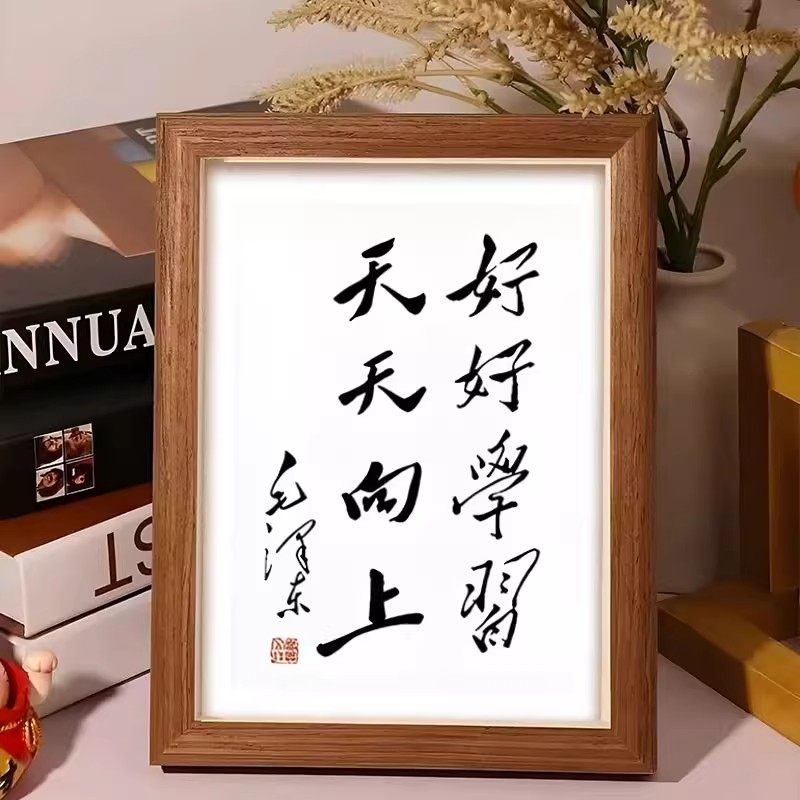 好好學習
天天向上
毛澤东
NNUA
TS